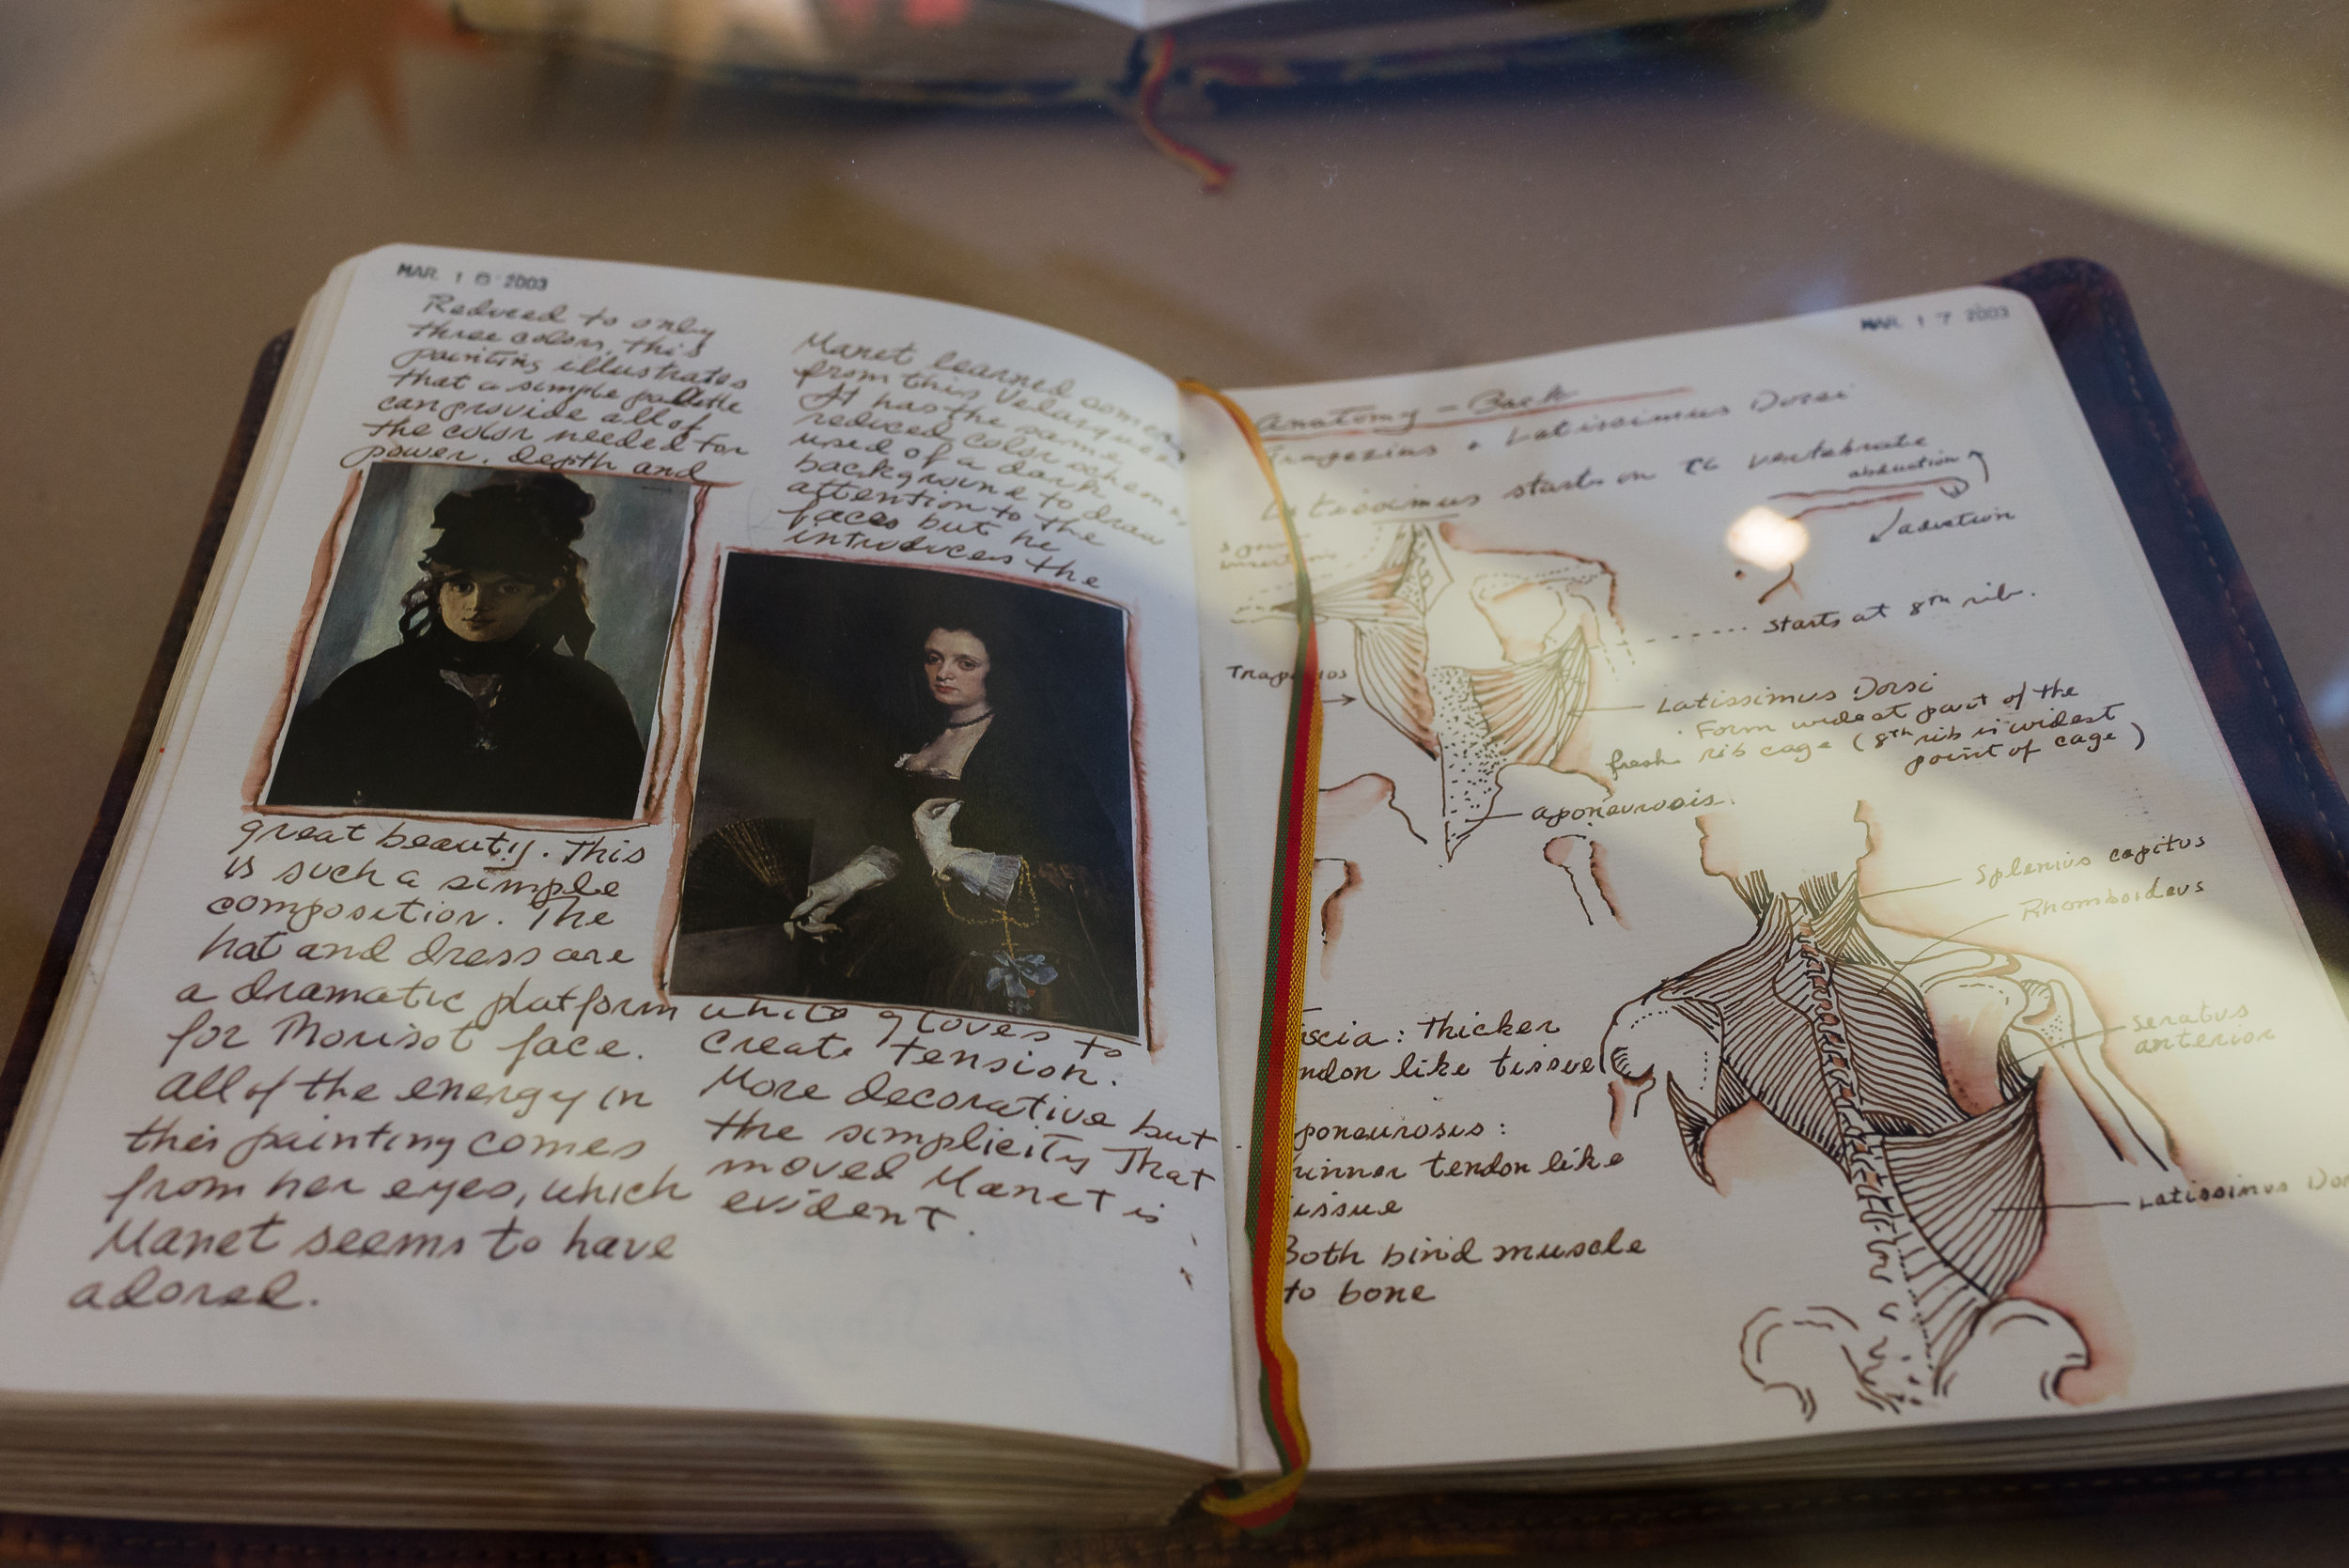 MAR. 1 6 2003
Reduced to only
three colors, this
painting illustrates
that a simple palette
can provide all of
the color needed for
power, depth and
great beauty. This
is such a simple
composition. The
hat and dress are
a dramatic platform
for Morisot face.
All of the energy in
this painting comes
from her eyes, which
Manet seems to have
adored.
Manet learned
from this Velasquez
It has the same
reduced color scheme,
used of a dark
background to draw
attention to the
faces but he
introduces the
white gloves to
create tension.
More decorative but
the simplicity that
moved Manet is
evident.
MAR. 1 7 2003
Anatomy - Back
Trapezius + Latissimus Dorsi
Latissimus starts on T6 vertebrate
abduction
aduction
starts at 8th rib.
Trapezios
Latissimus Dorsi
· Form widest part of the
fresh rib cage (8th rib is widest
point of cage)
aponeurosis.
Splenius capitus
Rhomboideus
Seratus
anterior
Latissimus Dor
scia: Thicker
ndon like tissue
poneurosis:
inner tendon like
issue
Both bind muscle
to bone